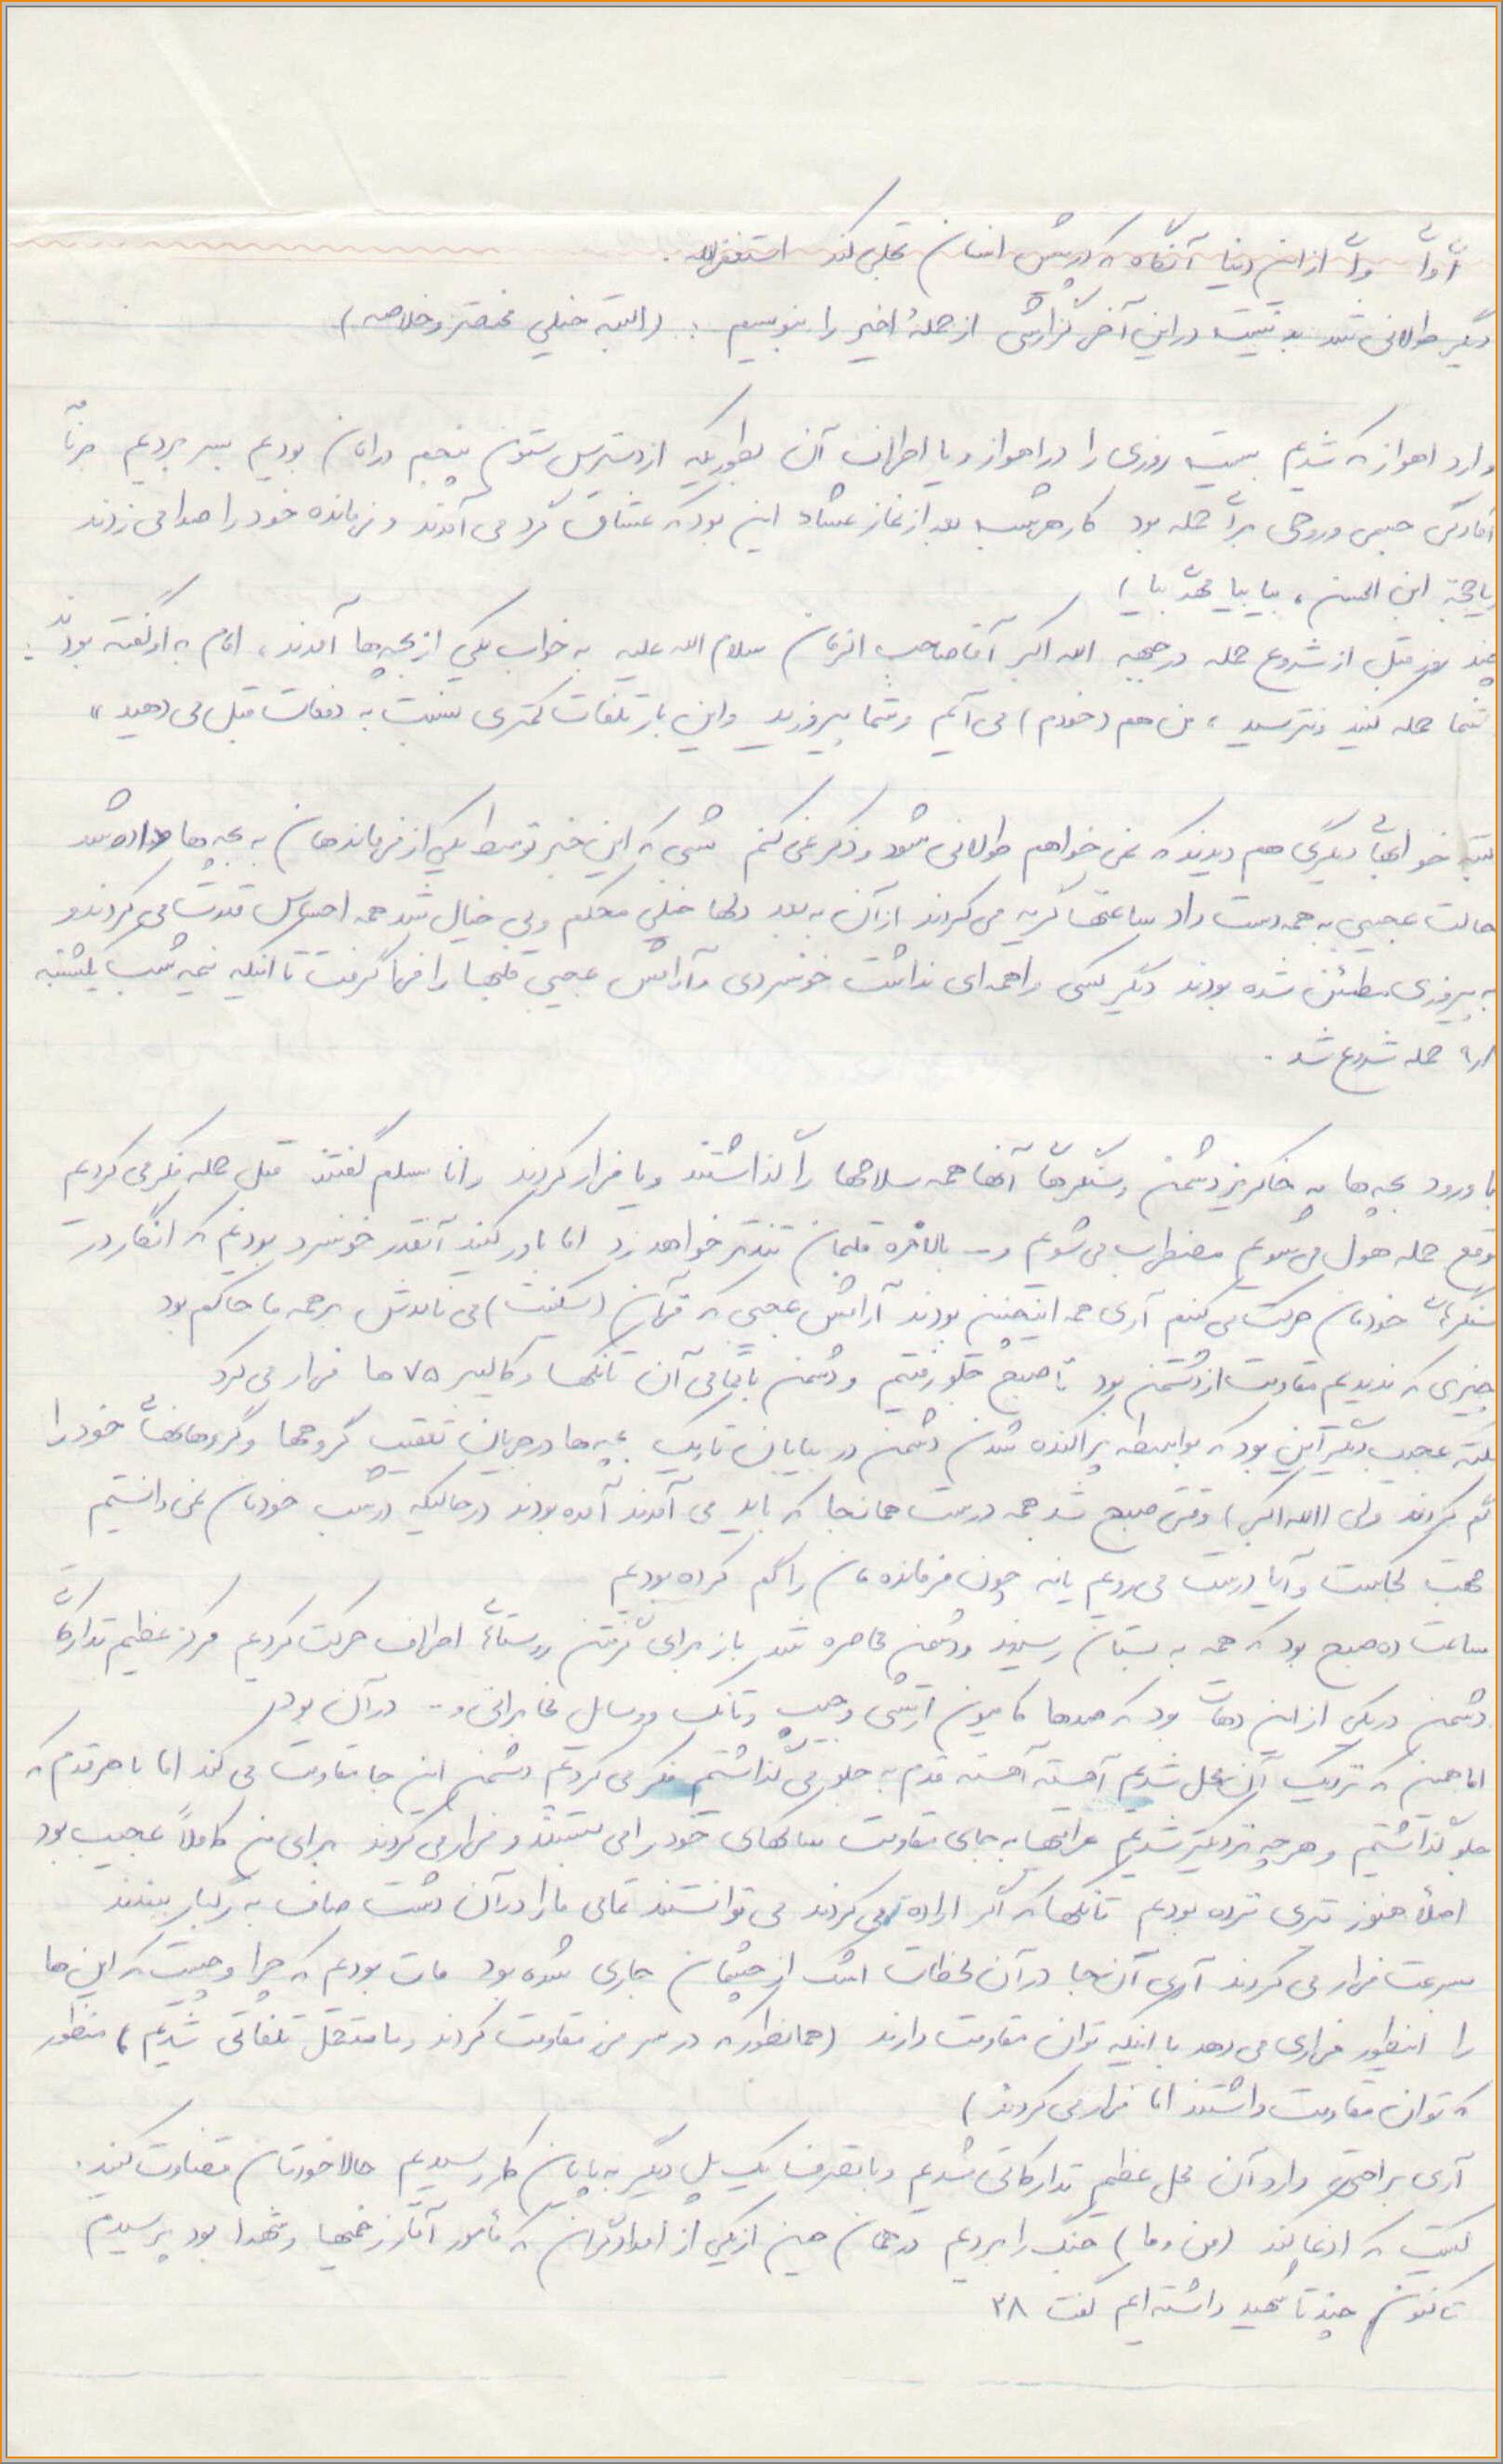 وای از این دنیا آنگاه که در پیش انسان تجلی کند استغفرالله.
دیگر طولانی شد بد نیست در این آخر گزارشی از حملهٔ اخیر را بنویسیم: (البته خیلی مختصر و خلاصه)
وارد اهواز که شدیم بیست روزی را در اهواز و یا اطراف آن بطوریکه از دسترس ستون پنجم در امان بودیم بسر بردیم
آمادگی جسمی و روحی برای حمله بود کار هر شب بعد از نماز عشاء این بود که عشاق گرد می آمدند و فرمانده خود را صدا می زدند
یا حجة ابن الحسن، بیا بیا
چند روز قبل از شروع حمله در جبهه الله اکبر آقا صاحب الزمان سلام الله علیه به خواب یکی از بچه ها آمدند، امام به او گفته بودند:
شما حمله کنید و نترسید، من هم (خودم) می آیم و شما پیروزید و این بار تلفات کمتری نسبت به دفعات قبل می دهید"
البته خوابهای دیگری هم دیدند که نمی خواهم طولانی شود و ذکر نمی کنم شبی که این خبر توسط یکی از فرماندهان به بچه ها داده شد
حالت عجیبی به همه دست داد ساعتها گریه می کردند از آن به بعد دلها خیلی محکم و بی خیال شد همه احساس قدرت می کردند و
به پیروزی مطمئن شده بودند دیگر کسی واهمه ای نداشت خونسردی و آرامش عجیبی قلبها را فرا گرفت تا اینکه نیمه شب یکشنبه
حمله شروع شد.
با ورود بچه ها به خاکریز دشمن و سنگرهای آنها همه سلاحها را گذاشتند و یا فرار کردند و انا مسلم گفتند قبل حمله فکر می کردیم
موقع حمله هول می شویم مضطرب می شویم و... بالاخره قلبمان تندتر خواهد زد اما باور کنید آنقدر خونسرد بودیم که انگار در
سنگرهای خودمان حرکت می کنیم آری همه اینچنین بودند آرامش عجیبی که قرآن (سکینت) می نامدش بر همه ما حاکم بود
چیزی که ندیدیم مقاومت از دشمن بود تا صبح جلو رفتیم و دشمن با تمامی آن تانکها و کالیبر ۷۵ ها فرار می کرد
نکته عجیب دیگر این بود که بواسطه پراکنده شدن دشمن در بیابان تاریک بچه ها در جریان تعقیب گروهها و گروهانهای خود را
گم کردند ولی (الله اکبر) وقتی صبح شد همه درست همانجا که باید می آمدند آمده بودند در حالیکه در شب خودمان نمی دانستیم
جهت کجاست و آیا درست می رویم یا نه چون فرمانده مان را گم کرده بودیم
ساعت ده صبح بود که همه به بستان رسیدند و دشمن محاصره شد باز برای گرفتن روستاهای اطراف حرکت کردیم مرکز عظیم تدارکاتی
دشمن در یکی از این دهات بود که صدها کامیون ارتشی و جیپ و تانک و وسایل مخابراتی و... در آن بود
اما همین که نزدیک آن محل شدیم آهسته آهسته قدم به جلو می گذاشتیم فکر می کردیم دشمن این جا مقاومت می کند اما با هر قدم که
جلو گذاشتیم و هر چه نزدیکتر شدیم عراقیها به جای مقاومت ساکهای خود را می بستند و فرار می کردند برای من کاملاً عجیب بود
اصلاً هنوز تیری نزده بودیم تانکها که اگر اراده می کردند می توانستند تمامی ما را در آن دشت صاف به رگبار ببندند
بسرعت فرار می کردند آری آن جا در آن لحظات اشک از چشمان جاری شده بود مات بودیم که چرا و چیست که این ها
را اینطور فراری می دهد با اینکه توان مقاومت دارند (همانطور که در مقاومت کردند و ما متحمل تلفاتی شدیم) منظور
که توان مقاومت داشتند اما فرار می کردند)
آری براحتی وارد آن محل عظیم تدارکاتی شدیم و با تصرف یک پل دیگر به پایان کار رسیدیم حالا خودتان قضاوت کنید.
کیست که ادعا کند (من و ما) جنگ را بردیم در همان حین از یکی از امدادگران که مأمور آمار زخمیها و شهدا بود پرسیدم
تا کنون چند تا شهید داشته ایم گفت ۲۸